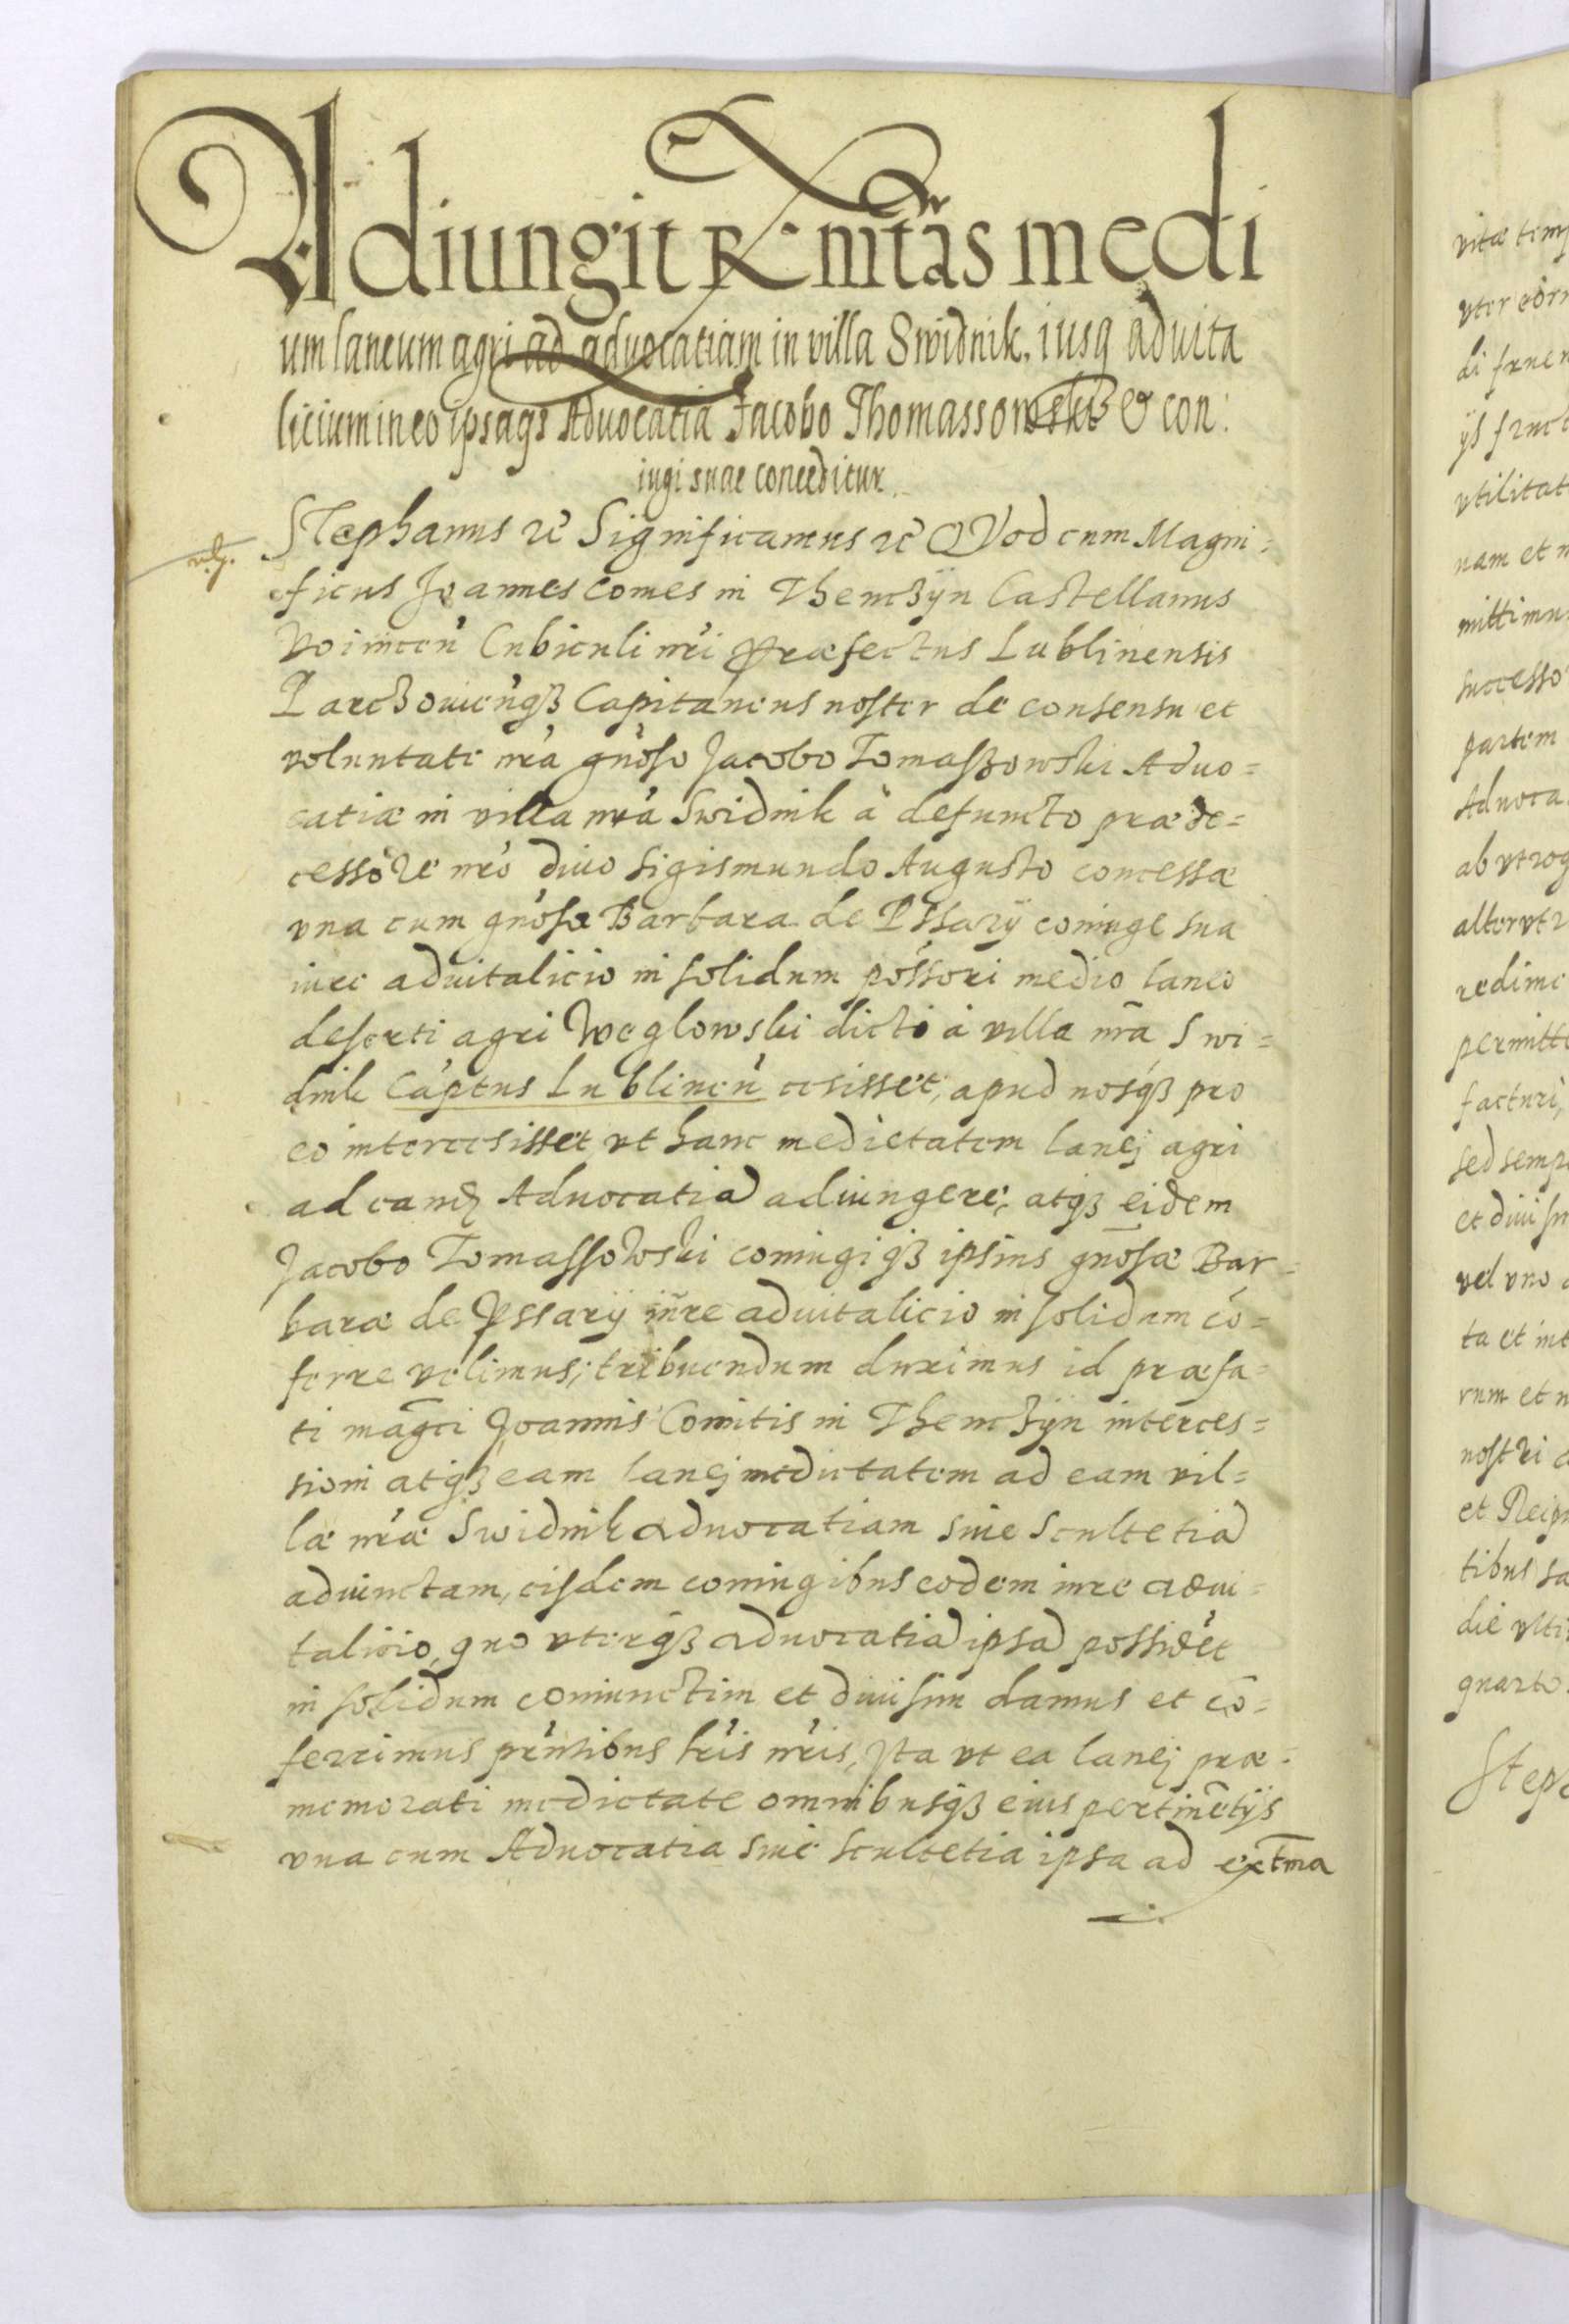 Adiungit R. mtas medi
um laneum agri ad advocatiam in villa Swidnik. iusq advita
licium in eo ipsaqз Advocatia Jacobo Thomassowski & con:
iugi suae conceditur
Stephanus rc Significamus rc QVod cum Magni=
ficus Joannes Comes in Themczÿn Castellanus
Woinicen Cubiculi nri Præfectus Lublinensis
Parczouienqз Capitaneus noster de consensu et
voluntate nra gnoso Jacobo Tomaszowski Advo=
catiæ in villa nra Swidnik à defuncto præde=
cessore nro divo Sigismundo Augusto concessæ
vna cum gnosa Barbara de Pssarÿ coniuge sua
iure aduitalicio in solidum possori medio laneo
deserti agri Weglowski dicto à villa nra Swi=
dnik Captus Lublinen cesisset, apud nosqз pro
eo intercesisset vt hanc medietatem lanej agri
ad eand Aduocatia adiungere, atqз eidem
Jacobo Tomassowski coniugiqз ipsius gnosæ Bar=
baræ de Pssarÿ iure aduitalicio in solidum co=
ferre velimus; tribuendum duximus id præfa=
ti magci Joannis Comitis in Themczÿn interces=
sioni atqз eam lanej medietatem ad eam vil=
læ nræ Swidnik aduocatiam siue Scultetia
adiunctam, eisdem coniugibus eodem iure adui=
talicio, quo vterqз aduocatia ipsa possidet
in solidum coniunctim et diuisim damus et co=
ferrimus pntibus lris nris, Jta vt ea lanej præ=
memorati medietate omnibusqз eius pertinetijs
vna cum Aduocatia siue scultetia ipsa ad extma
vitæ temp
vter eor
di fruen
ÿs fruct
vtilitat
nam et n
mittimus
successo
partem
Aduoca
ab vtroq
altervtr
redime
permitte
facturi,
sed semp
et diuisi
vel vno
ta et int
rum et n
nostri
et Reip
tibus sa
die vlti
quarto.
Step